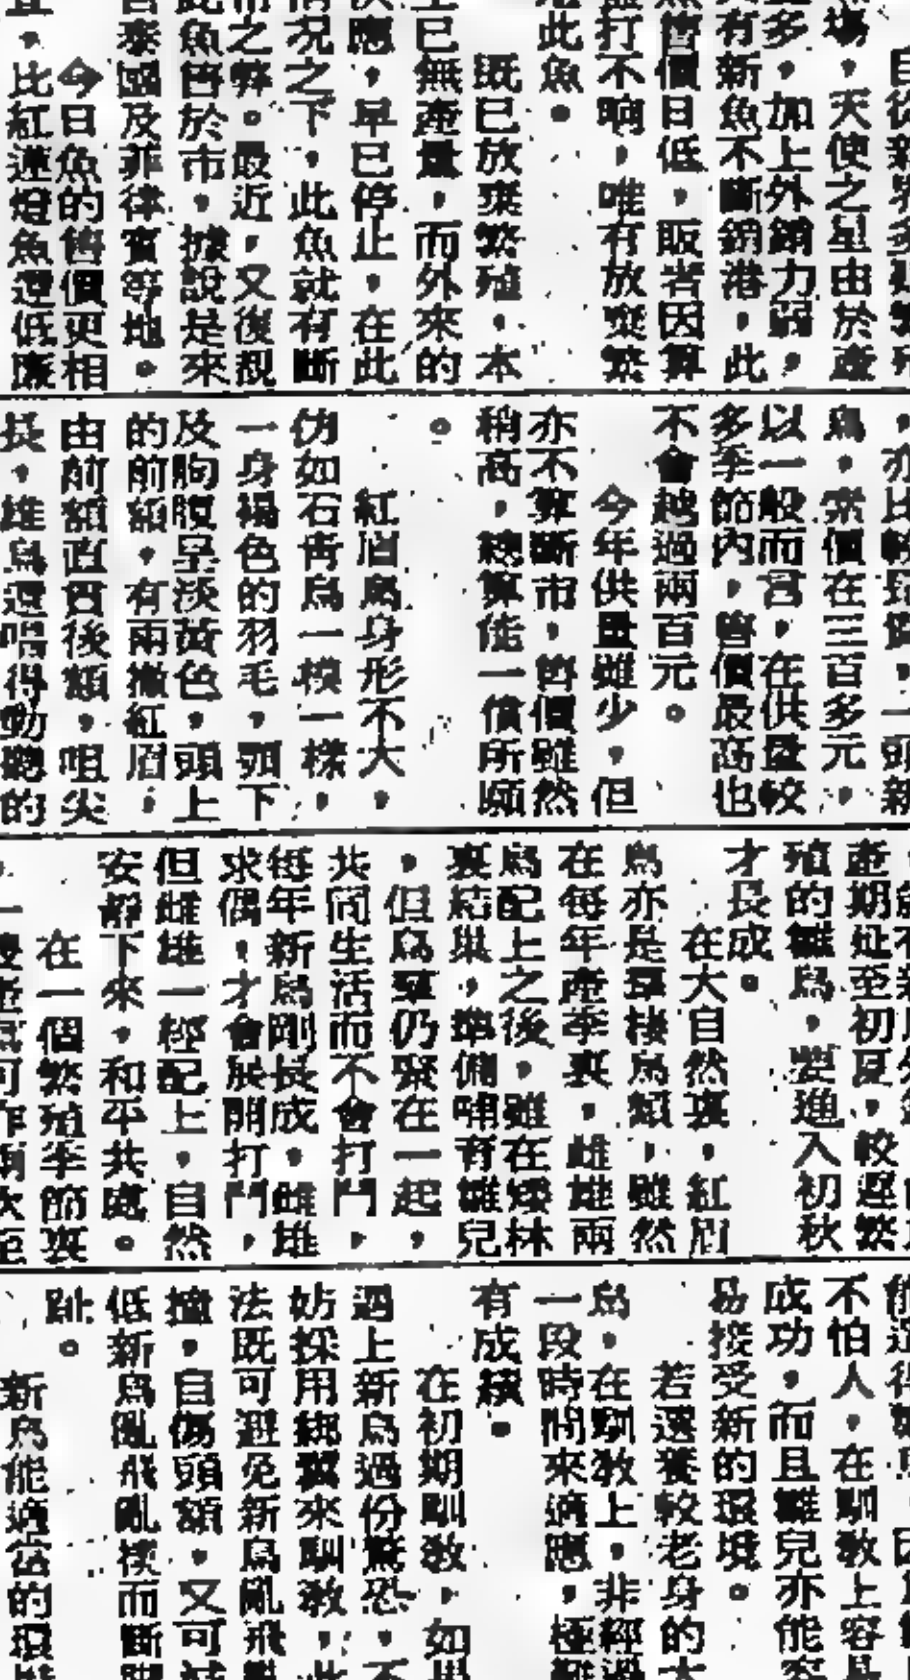 場，天使之星由於產
多，加上外銷力弱，
有新魚不斷銷港，此
魚售價日低，販者因算
盤打不响，唯有放棄繁
殖此魚。
既已放棄繁殖，本
土已無產量，而外來的
供應，早已停止，在此
情况之下，此魚就有斷
市之弊。最近，又復現
此魚售於市，據說是來
自泰國及菲律賓等地。
今日魚的售價更相
宜，比紅蓮燈魚還低廉
，亦比較昂貴，一頭新
鳥，索價在三百多元，
以一般而言，在供量較
多季節內，售價最高也
不會越過兩百元。
今年供量雖少，但
亦不算斷市，售價雖然
稍高，總算能一償所願
。
紅眉鳥身形不大，
仿如石青鳥一模一樣，
一身褐色的羽毛，頭下
及胸腹呈淡黃色，頭上
的前額，有兩撇紅眉，
由前額直貫後額，咀尖
長，雄鳥還唱得動聽的
產期延至初夏，較遲繁
殖的雛鳥，要進入初秋
才長成。
在大自然裏，紅眉
鳥亦是羣棲鳥類，雖然
在每年產季裏，雌雄兩
鳥配上之後，雖在矮林
裏結巢，準備哺育雛兒
，但鳥羣仍聚在一起，
共同生活而不會打鬥，
每年新鳥剛長成，雌雄
求偶，才會展開打鬥，
但雌雄一經配上，自然
安靜下來，和平共處。
在一個繁殖季節裏
不怕人，在馴教上容易
成功，而且雛兒亦能容
易接受新的環境。
若選養較老身的大
鳥，在馴教上，非經過
一段時間來適應，極難
有成績。
在初期馴教，如果
遇上新鳥過份驚恐，不
妨採用綁翼來馴教，此
法既可避免新鳥亂飛
撞，自傷頭額，又可減
低新鳥亂飛亂撲而斷脚
趾。
新鳥能適當的環